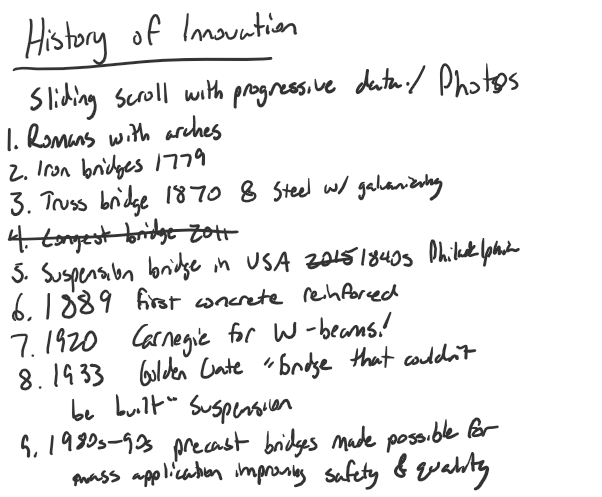 History of Innovation
Sliding scroll with progressive data / Photos
1. Romans with arches
2. Iron bridges 1779
3. Truss bridge 1870 & Steel w/ galvanizing
4. Longest bridge 2011
5. Suspension bridge in USA 2015 1840s Philadelphia
6. 1889 first concrete reinforced
7. 1920 Carnegie for W-beams!
8. 1933 Golden Gate "bridge that couldn't
be built" Suspension
9. 1980s-90s precast bridges made possible for
mass application improving safety & quality